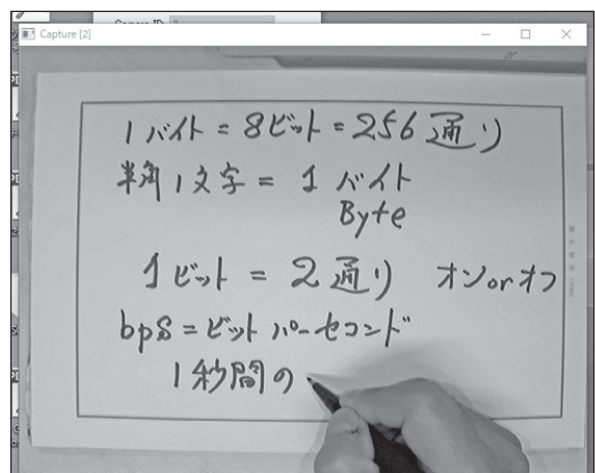 Capture [2]
1バイト = 8ビット = 256通り
半角1文字 = 1 バイト
Byte
1ビット = 2通り オンorオフ
bps = ビットパーセコンド
1秒間の